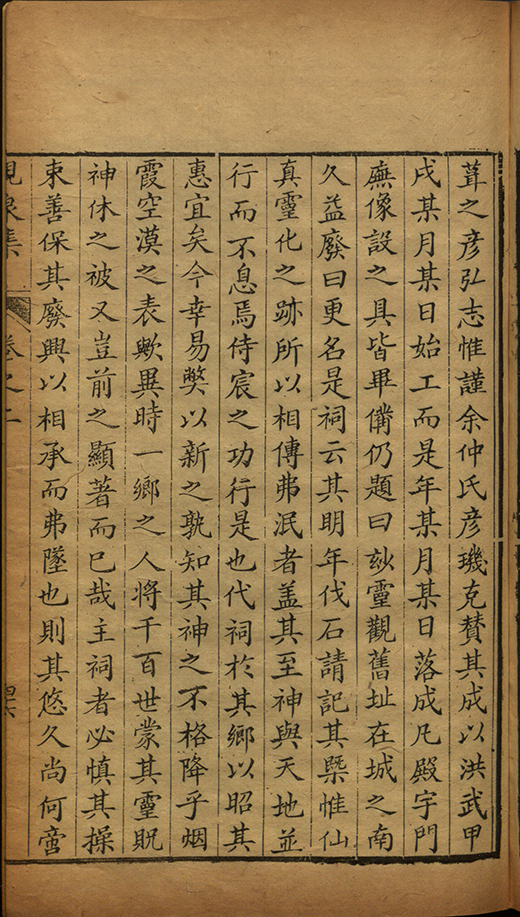 葺之彦弘志惟謹余仲氏彦璣克賛其成以洪武甲
戌某月某日始工而是年某月某日落成凡殿宇門
廡像設之具皆畢備仍題曰玅靈觀舊址在城之南
久益廢曰更名是祠云其明年伐石請記其槩惟仙
真靈化之跡所以相傳弗泯者盖其至神與天地並
行而不息焉侍宸之功行是也代祠於其鄉以昭其
惠宜矣今幸易弊以新之孰知其神之不格降乎烟
霞空漠之表歟異時一鄉之人将千百世蒙其靈貺
神休之被又豈前之顯著而已哉主祠者必慎其操
束善保其廢興以相承而弗墜也則其悠久尚何啻
峴泉集 卷之二